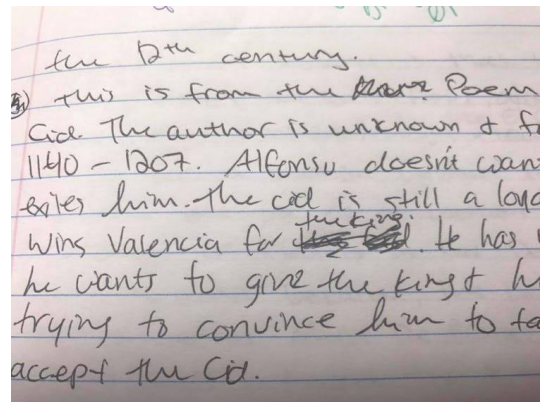 the 12th century.
this is from the Poem
Cid The author is unknown & f
1140 - 1207. Alfonsu doesn't wan
exiles him. the cid is still a loya
the king.
Wins Valencia for . He has
he wants to give the king & h
trying to convince him to ta
accept the Cid.